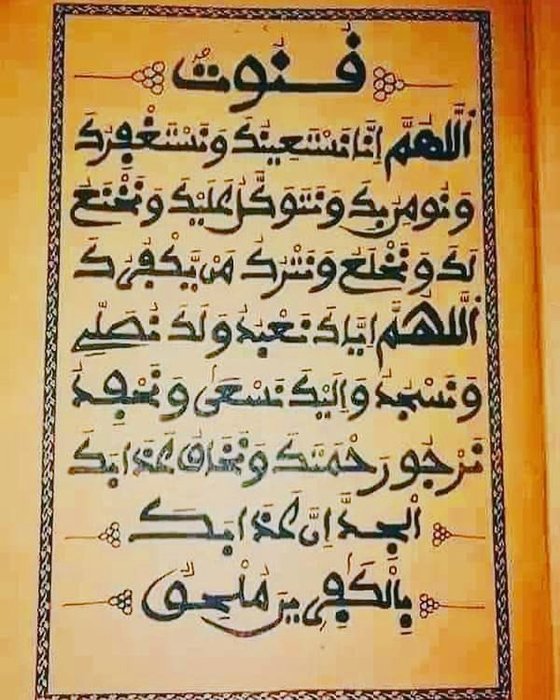 قُنُوتٌ
اَللَّهُمَّ إِنَّا نَسْتَعِينُكَ وَنَسْتَغْفِرُكَ
وَنُومِنُ بِكَ وَنَتَوَكَّلُ عَلَيْكَ وَنَخْنَعُ
لَكَ وَنَخْلَعُ وَنَتْرُكُ مَنْ يَّكْفُرُكَ
اَللَّهُمَّ إِيَّاكَ نَعْبُدُ وَلَكَ نُصَلِّي
وَنَسْجُدُ وَإِلَيْكَ نَسْعَى وَنَحْفِدُ
نَرْجُو رَحْمَتَكَ وَنَخَافُ عَذَابَكَ
اَلْجِدَّ إِنَّ عَذَابَكَ
بِالْكٰفِرِينَ مُلْحِقٌ